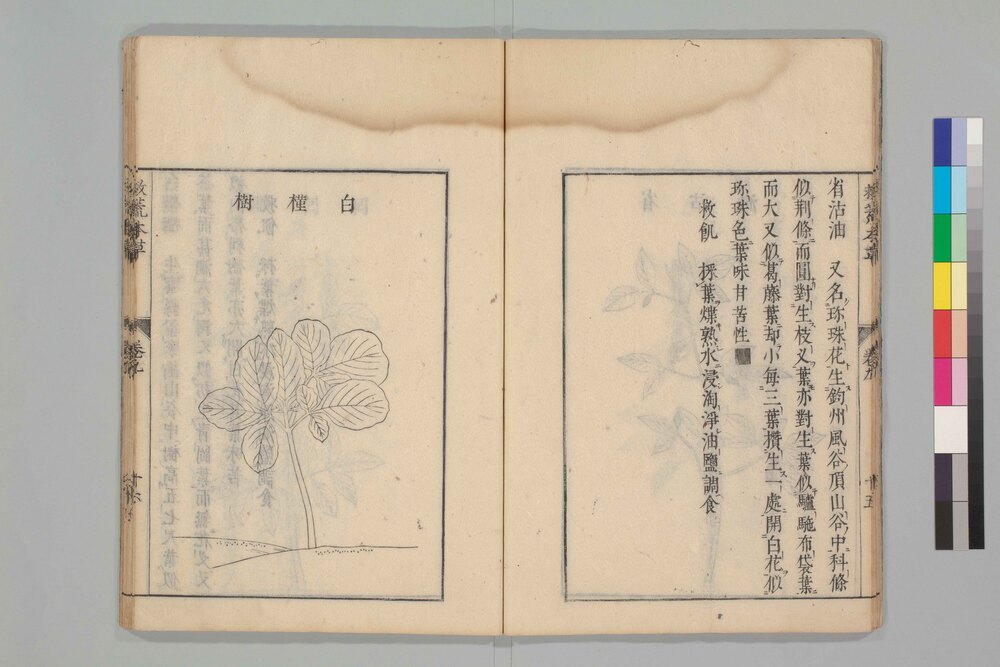 救荒本草
卷九
十五
省沽油　又名珎珠花生鈞州風谷頂山谷中科條
似荆條而圓對生枝叉葉亦對生葉似驢駞布袋葉
而大又似葛藤葉却小每三葉攢生一處開白花似
珎珠色葉味甘苦性
救飢　採葉煠熟水浸淘淨油鹽調食
白槿樹
救荒本草
卷九
十六